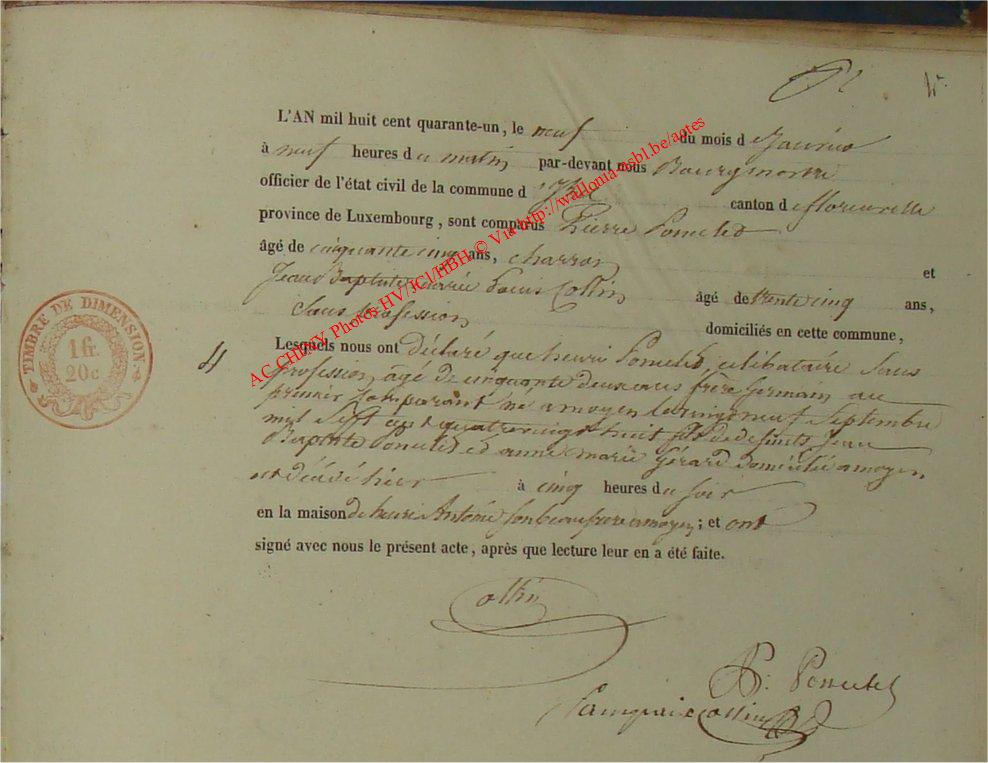 L'AN mil huit cent quarante-un, le neuf du mois de Janvier
à neuf heures du matin par-devant nous Bourgmestre
officier de l'état civil de la commune d'Izel canton de florenville
province de Luxembourg, sont comparus Pierre Poncelet
âgé de cinquante cinq ans, charron et
Jean Baptiste Collin âgé de trente cinq ans,
Sans profession domiciliés en cette commune,
4
Lesquels nous ont déclaré que henri Poncelet, célibataire Sans
profession, âgé de cinquante deux ans frère Germain au
premier Comparant né a moyen le vingt neuf Septembre
mil Sept cent quatrevingt huit fils de defunts Jean
Baptiste Poncelet et anne marie Gérard domicilié a moyen,
est décédé hier à cinq heures du soir
en la maison de henri Antoine Son beaufrere a moyen; et ont
signé avec nous le présent acte, après que lecture leur en a été faite.
Collin
P. Poncelet
Collin
TIMBRE DE DIMENSION
1 fr.
20 c
AC CHINY Photos HV/JCI/HBH © Via http://wallonia-asbl.be/actes